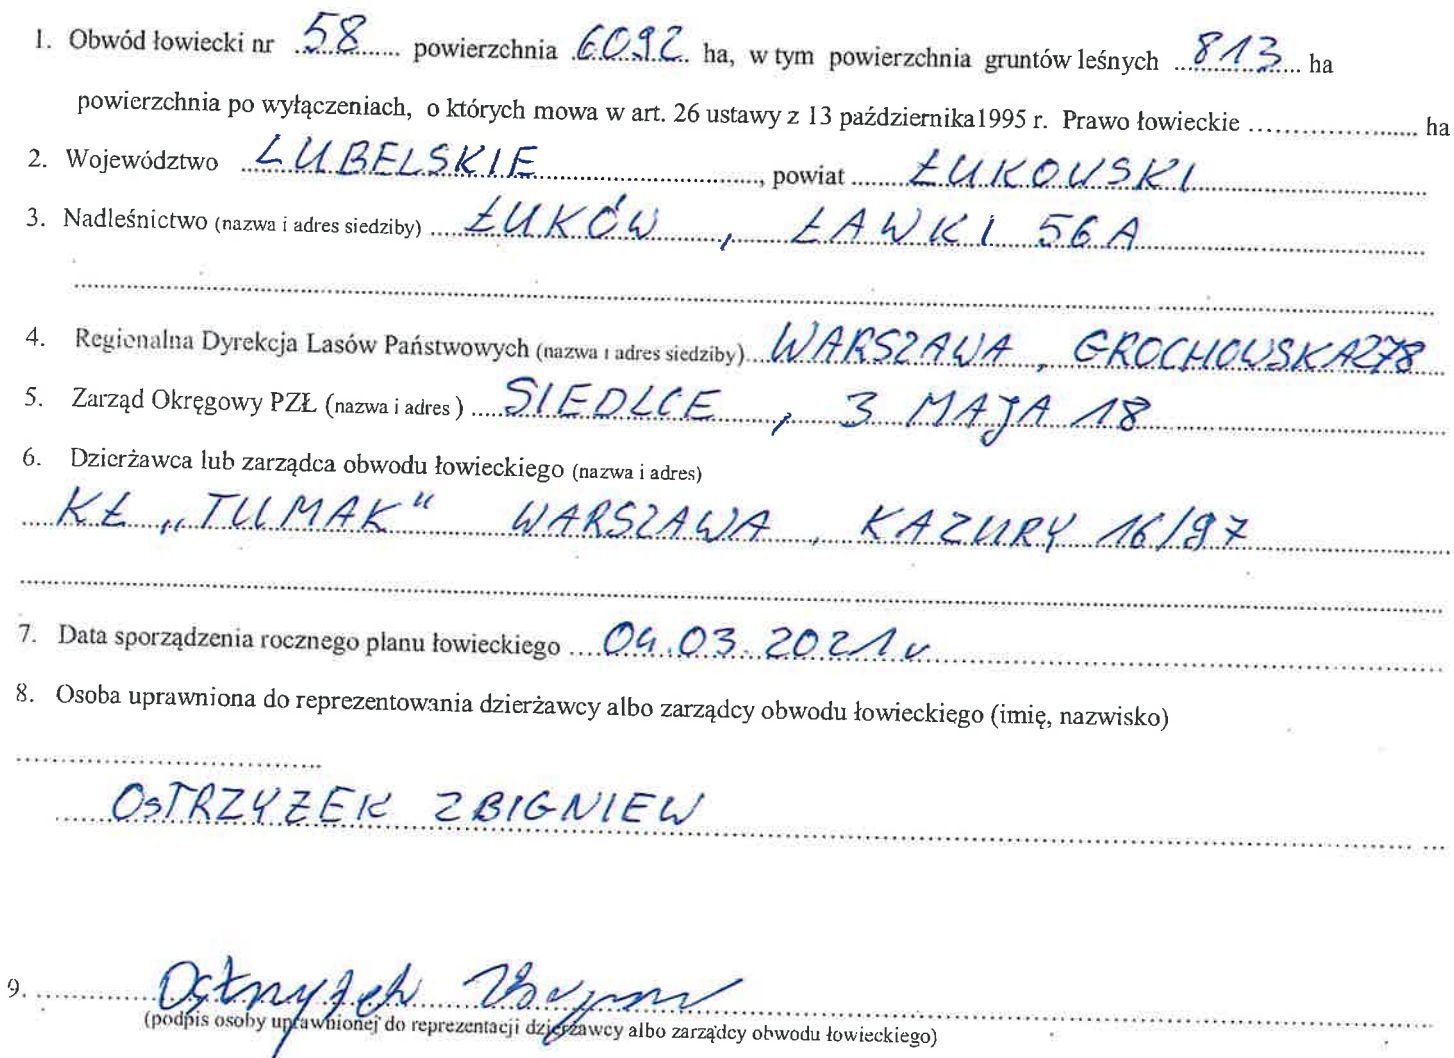 1. Obwód łowiecki nr 58 powierzchnia 6092 ha, w tym powierzchnia gruntów leśnych 813 ha
powierzchnia po wyłączeniach, o których mowa w art. 26 ustawy z 13 października1995 r. Prawo łowieckie .................... ha
2. Województwo LUBELSKIE, powiat ŁUKOWSKI
3. Nadleśnictwo (nazwa i adres siedziby) ŁUKÓW, ŁAWKI 56A
4. Regionalna Dyrekcja Lasów Państwowych (nazwa i adres siedziby) WARSZAWA, GROCHOWSKA 278
5. Zarząd Okręgowy PZŁ (nazwa i adres) SIEDLCE, 3 MAJA 18
6. Dzierżawca lub zarządca obwodu łowieckiego (nazwa i adres)
KŁ „TUMAK" WARSZAWA, KAZURY 16/97
7. Data sporządzenia rocznego planu łowieckiego 04.03.2021 r
8. Osoba uprawniona do reprezentowania dzierżawcy albo zarządcy obwodu łowieckiego (imię, nazwisko)
OSTRZYŻEK ZBIGNIEW
9. Ostrzyżek Zbigniew
(podpis osoby uprawnionej do reprezentacji dzierżawcy albo zarządcy obwodu łowieckiego)